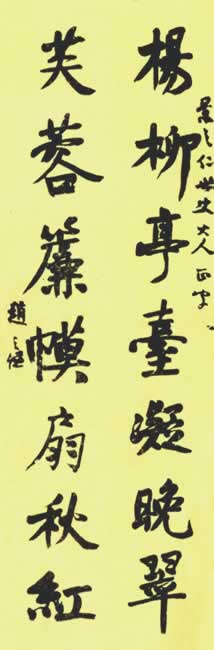 楊柳亭臺凝晚翠
之仁世丈大人正字
芙蓉簾幙扇秋紅
趙之謙